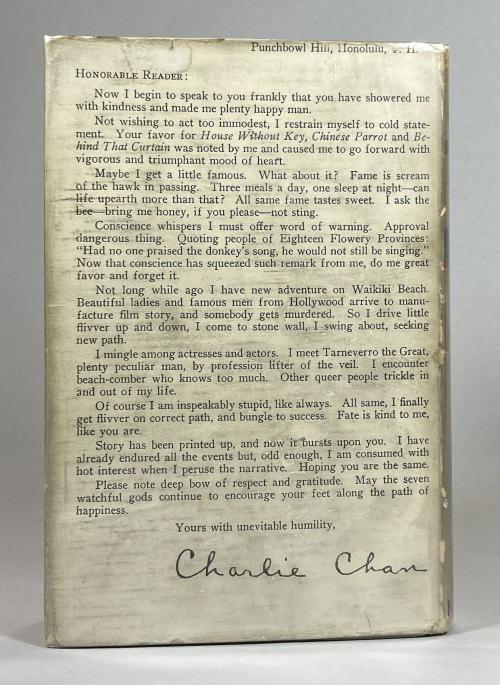 Punchbowl Hill, Honolulu, T. H.
Honorable Reader:
Now I begin to speak to you frankly that you have showered me
with kindness and made me plenty happy man.
Not wishing to act too immodest, I restrain myself to cold state-
ment. Your favor for House Without Key, Chinese Parrot and Be-
hind That Curtain was noted by me and caused me to go forward with
vigorous and triumphant mood of heart.
Maybe I get a little famous. What about it? Fame is scream
of the hawk in passing. Three meals a day, one sleep at night—can
life upearth more than that? All same fame tastes sweet. I ask the
bee—bring me honey, if you please—not sting.
Conscience whispers I must offer word of warning. Approval
dangerous thing. Quoting people of Eighteen Flowery Provinces:
"Had no one praised the donkey's song, he would not still be singing."
Now that conscience has squeezed such remark from me, do me great
favor and forget it.
Not long while ago I have new adventure on Waikiki Beach.
Beautiful ladies and famous men from Hollywood arrive to manu-
facture film story, and somebody gets murdered. So I drive little
flivver up and down, I come to stone wall, I swing about, seeking
new path.
I mingle among actresses and actors. I meet Tarneverro the Great,
plenty peculiar man, by profession lifter of the veil. I encounter
beach-comber who knows too much. Other queer people trickle in
and out of my life.
Of course I am inspeakably stupid, like always. All same, I finally
get flivver on correct path, and bungle to success. Fate is kind to me,
like you are.
Story has been printed up, and now it bursts upon you. I have
already endured all the events but, odd enough, I am consumed with
hot interest when I peruse the narrative. Hoping you are the same.
Please note deep bow of respect and gratitude. May the seven
watchful gods continue to encourage your feet along the path of
happiness.
Yours with unevitable humility,
Charlie Chan